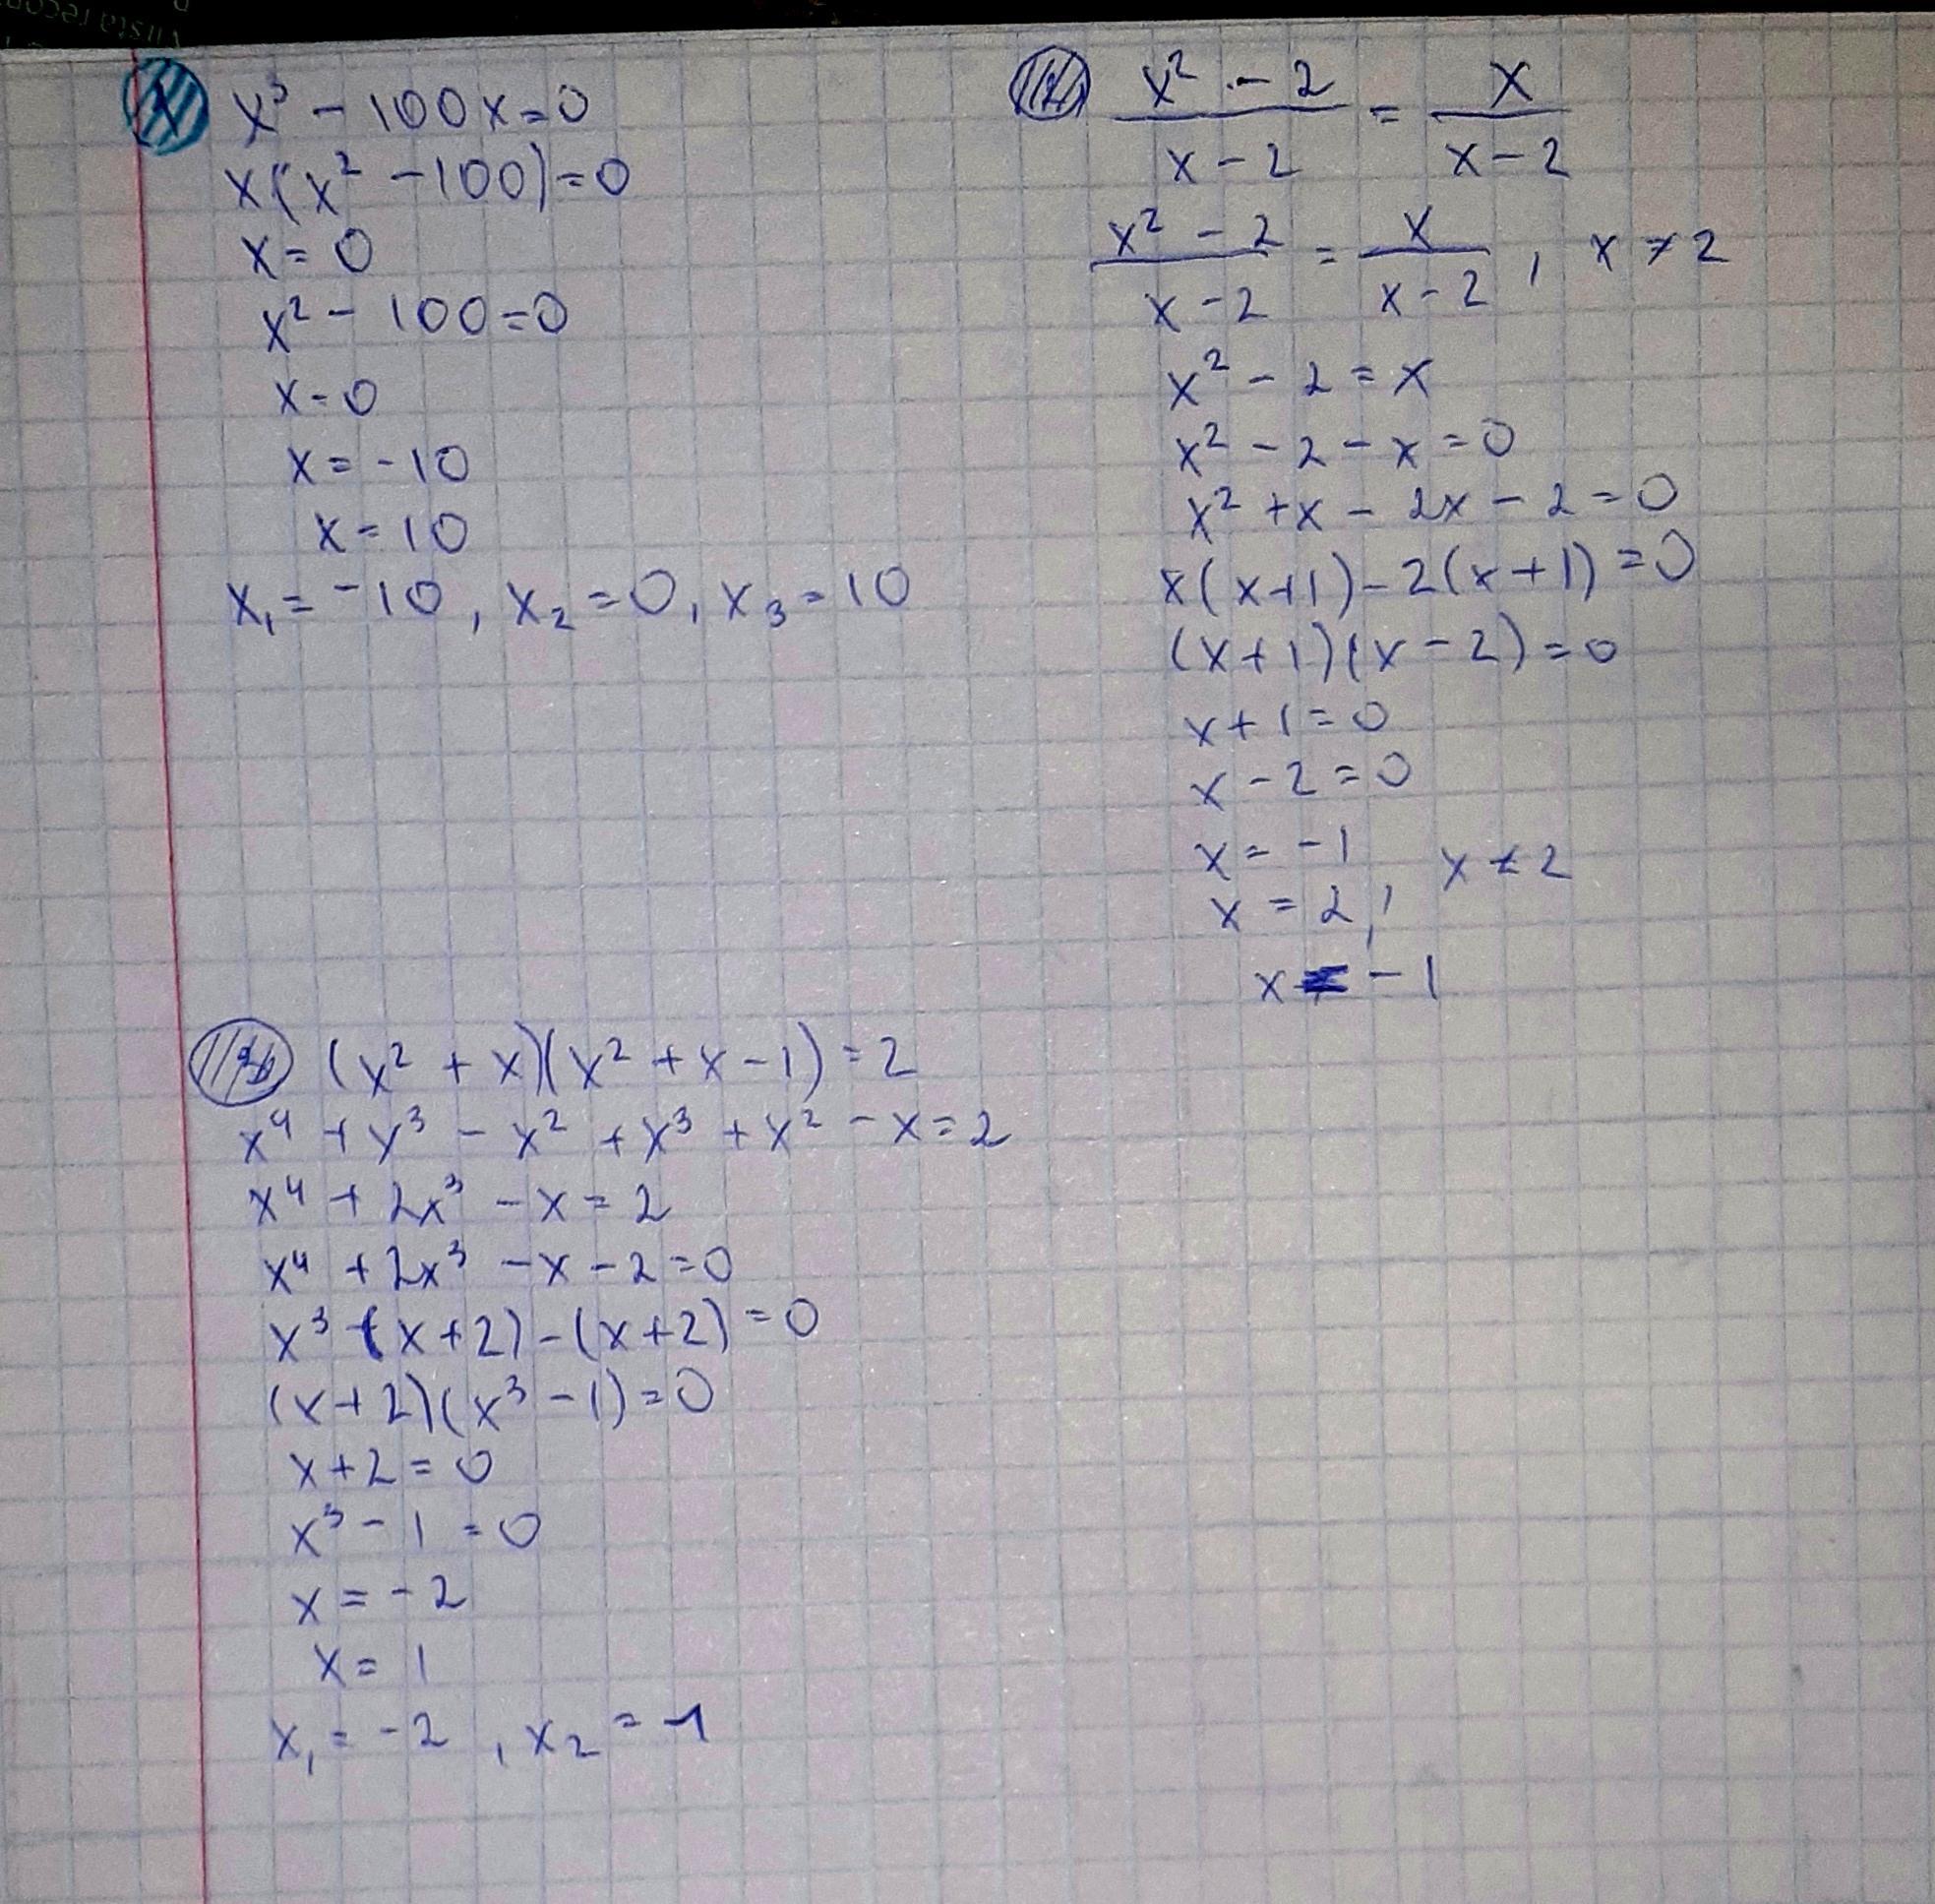 1 x³ - 100x = 0
x(x² - 100) = 0
x = 0
x² - 100 = 0
x = 0
x = -10
x = 10
x₁ = -10, x₂ = 0, x₃ = 10
2 (x² - 2)/(x - 2) = x/(x - 2)
(x² - 2)/(x - 2) = x/(x - 2), x ≠ 2
x² - 2 = x
x² - 2 - x = 0
x² + x - 2x - 2 = 0
x(x+1) - 2(x+1) = 0
(x+1)(x-2) = 0
x + 1 = 0
x - 2 = 0
x = -1
x = 2, x ≠ 2
x = -1
(x² + x)(x² + x - 1) = 2
x⁴ + x³ - x² + x³ + x² - x = 2
x⁴ + 2x³ - x = 2
x⁴ + 2x³ - x - 2 = 0
x³(x+2) - (x+2) = 0
(x+2)(x³ - 1) = 0
x + 2 = 0
x³ - 1 = 0
x = -2
x = 1
x₁ = -2, x₂ = 1